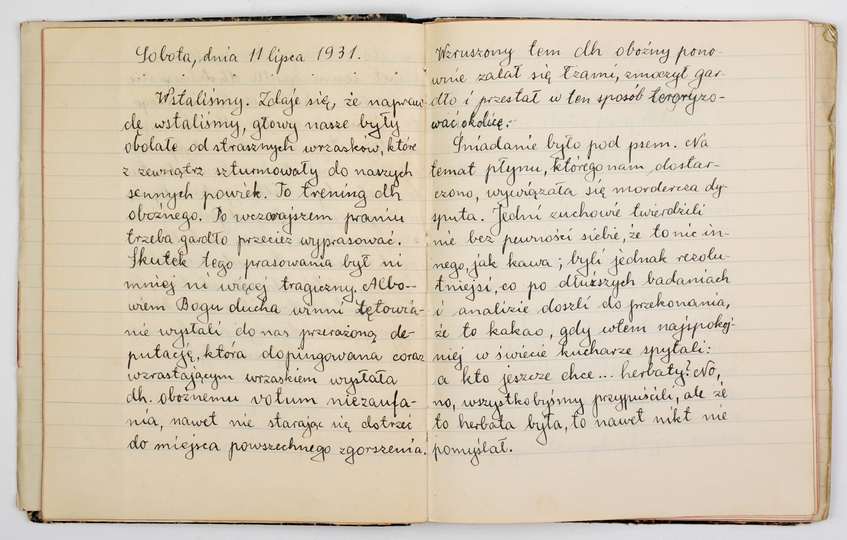 Sobota, dnia 11 lipca 1931.
Wstaliśmy. Zdaje się, że napraw-
dę wstaliśmy, głowy nasze były
obolałe od strasznych wrzasków, które
z zewnątrz szturmowały do naszych
sennych powiek. To trening dh
oboźnego. Po wczorajszem praniu
trzeba gardło przecież wyprasować.
Skutek tego prasowania był ni
mniej ni więcej tragiczny. Albo-
wiem Bogu ducha winni Łętowia-
nie wysłali do nas przerażoną de-
putację, która dopingowana coraz
wzrastającym wrzaskiem wysłała
dh. oboźnemu votum niezaufa-
nia, nawet nie starając się dotrzeć
do miejsca powszechnego zgorszenia.
Wzruszony tem dh oboźny pono-
wnie zalał się łzami, zmoczył gar-
dło i przestał w ten sposób teroryzo-
wać okolicę.
Śniadanie było pod psem. Na
temat płynu, którego nam dostar-
czono, wywiązała się mordercza dy-
sputa. Jedni zuchowie twierdzili
nie bez pewności siebie, że to nic in-
nego, jak kawa; byli jednak rezolu-
tniejsi, co po dłuższych badaniach
i analizie doszli do przekonania,
że to kakao, gdy wtem najspokoj-
niej w świecie kucharze spytali:
a kto jeszcze chce... herbaty? No,
no, wszystkobyśmy przypuścili, ale że
to herbata była, to nawet nikt nie
pomyślał.